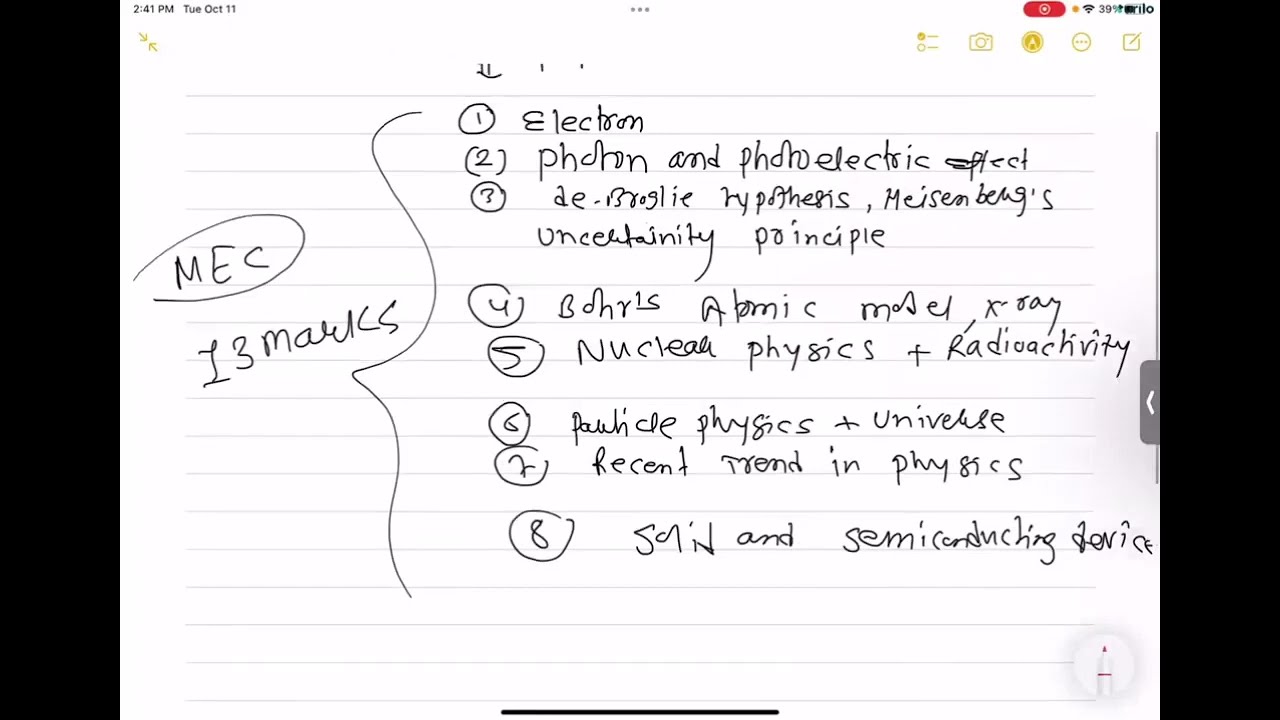 2:41 PM Tue Oct 11
39%
① Electron
(2) photon and photoelectric effect
③ de-Broglie hypothesis, Heisenberg's
uncertainity principle
④ Bohr's Atomic model, x-ray
⑤ Nuclear physics + Radioactivity
⑥ particle physics + universe
⑦ Recent Trend in physics
⑧ solid and semiconducting device
MEC
13 marks